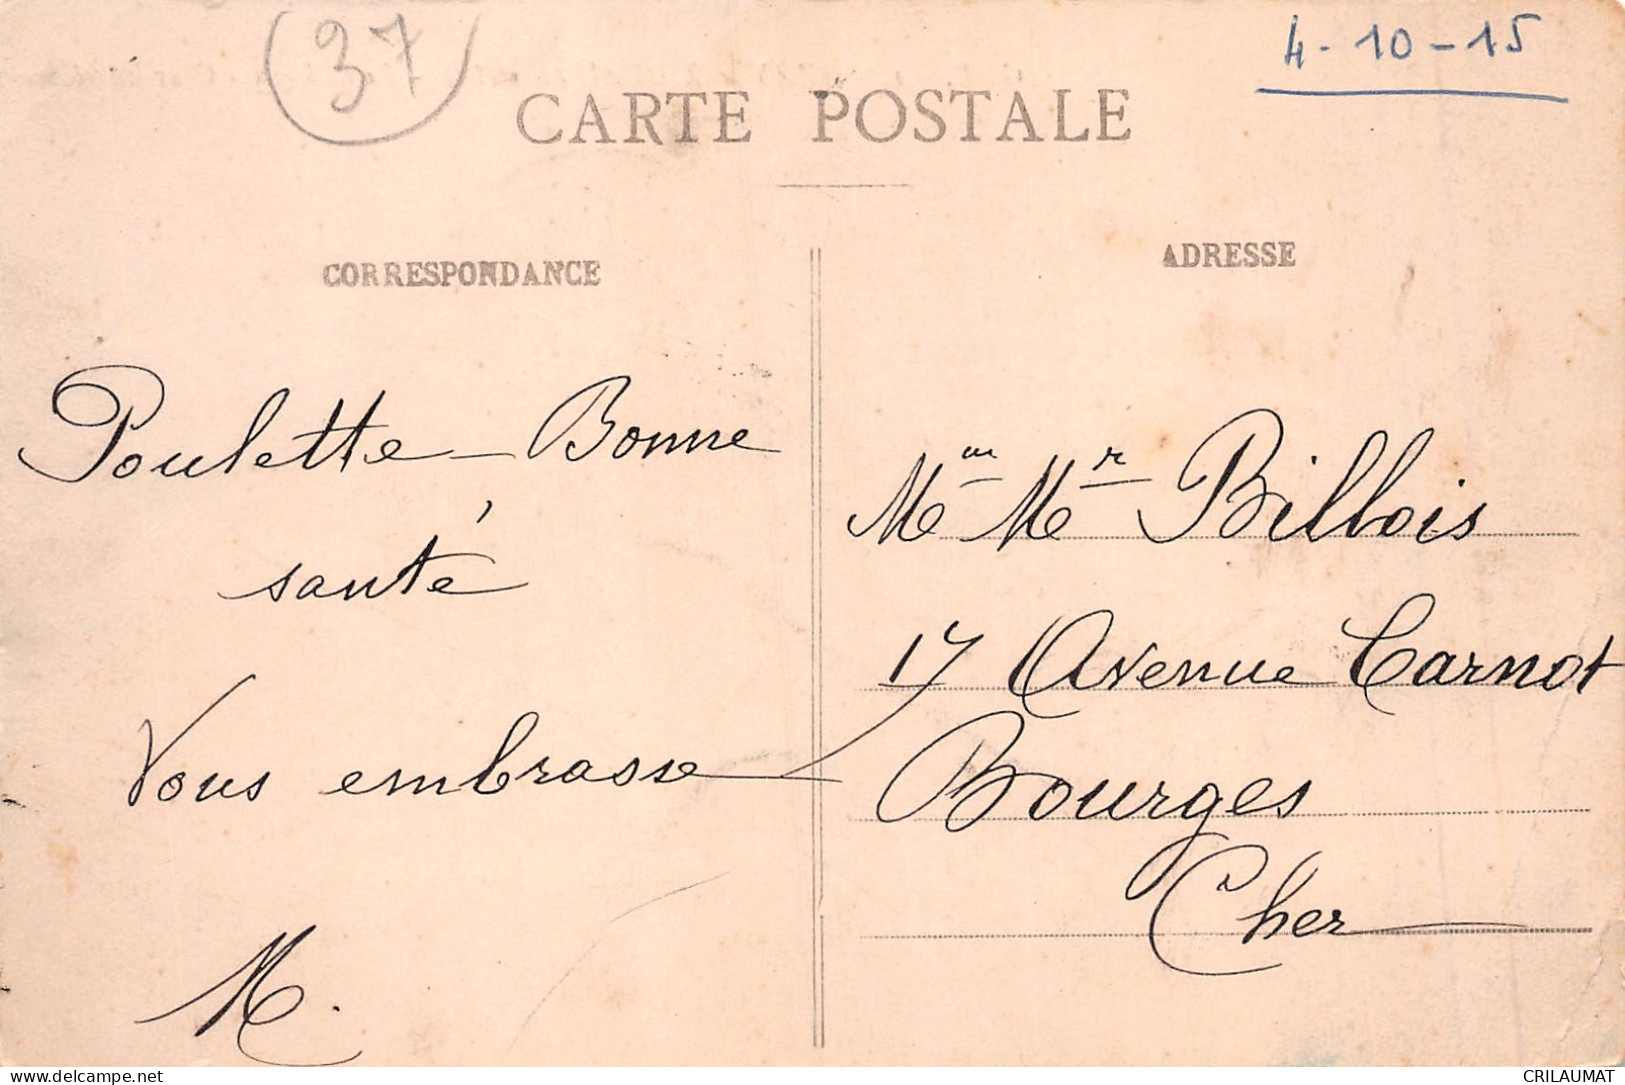 37
4-10-15
CARTE POSTALE
CORRESPONDANCE
ADRESSE
Poulette - Bonne
santé
Vous embrasse
M.
Mme Mr Billois
17 Avenue Carnot
Bourges
Cher
www.delcampe.net
CRILAUMAT